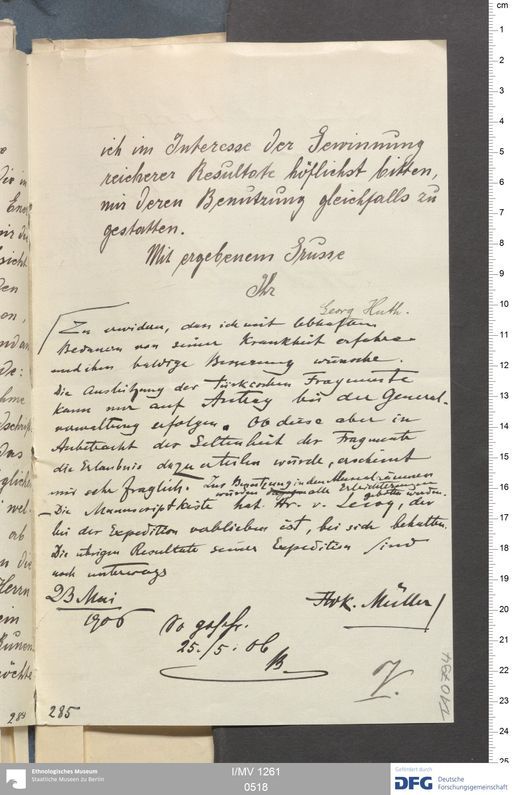 ich im Interesse der Gewinnung
reicherer Resultate höflichst bitten,
mir deren Benutzung gleichfalls zu
gestatten.
Mit ergebenem Grusse
Ihr
Georg Huth.
Zu erwidern, dass ich mit lebhaftem
Bedauern von seiner Krankheit erfahre
und ihm baldige Besserung wünsche.
Die Ausleihung der türkischen Fragmente
kann nur auf Antrag bei der General-
verwaltung erfolgen. Ob diese aber in
Anbetracht der Seltenheit der Fragmente
die Erlaubnis dazu erteilen würde, erscheint
mir sehr fraglich. Zur Benutzung in den Museumsräumen
würden alle Erleichterungen
geboten werden.
Die Manuscriptkiste hat Hr. v. Lecoq, der
bei der Expedition verblieben ist, bei sich behalten.
Die übrigen Resultate seiner Expedition sind
noch unterwegs
23 Mai
1906
FWK. Müller
So gesch.
25./5. 06
V.
284
285
I/MV 1261
0518
Ethnologisches Museum
Staatliche Museen zu Berlin
Gefördert durch
DFG Deutsche
Forschungsgemeinschaft
cm
1
2
3
4
5
6
7
8
9
10
11
12
13
14
15
16
17
18
19
20
21
22
23
24
25